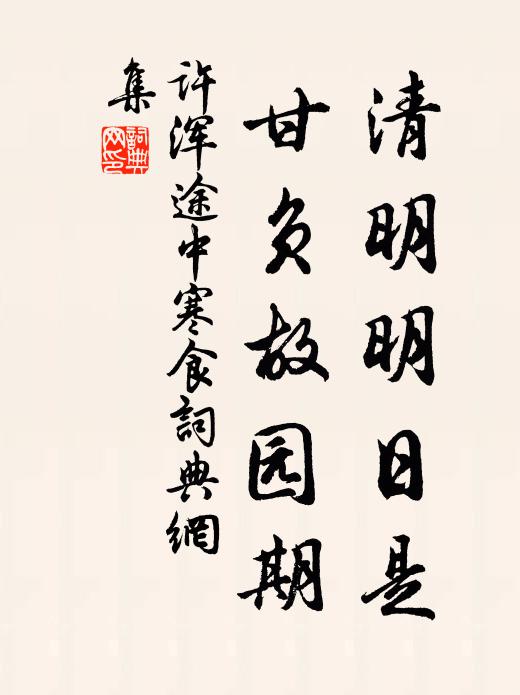 清明明日是
甘负故园期
许浑途中寒食詞典網
集
詞典网印